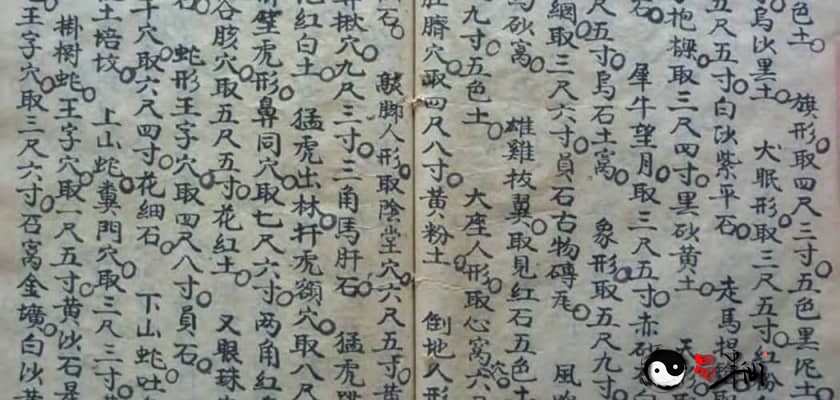 色土○ 旗形取四尺三寸○五色黑泥土
黑土 犬眠形取三尺五寸○紅粉
五尺五寸○白砂紫平石○ 走馬
抱樑取三尺四寸○黑砂黃土○
石○ 犀牛望月取三尺五寸○赤砂
尺五寸○烏石土窩○ 象形取五尺九寸○
網取三尺六寸○員石古物磚瓦○ 風
烏砂窩○ 雄雞拔翼○取見紅石五色土
九寸○五色土○ 大座人形○取心窩穴○六尺
肚臍穴○取四尺八寸○黃粉土 倒地人形
石○ 脚人形○取陰堂穴○六尺五寸○黃
揪穴○九尺三寸○三角馬肝石○ 猛虎跳
花紅白土○ 猛虎出林扞虎額穴○取八尺
壁虎形○鼻同穴○取七尺六寸○两角紅
谷胲穴○取五尺五寸○花紅土○ 又眼珠
石○ 蛇形王字穴○取四尺八寸○員石○
穴○取六尺四寸○花細石○ 下山蛇吐
土培坟○ 上山蛇糞門穴○取三尺三寸○
掛樹蛇○王字穴○取一尺五寸○黃沙石是
王字穴○取三尺六寸○石窩金壙○白沙黃